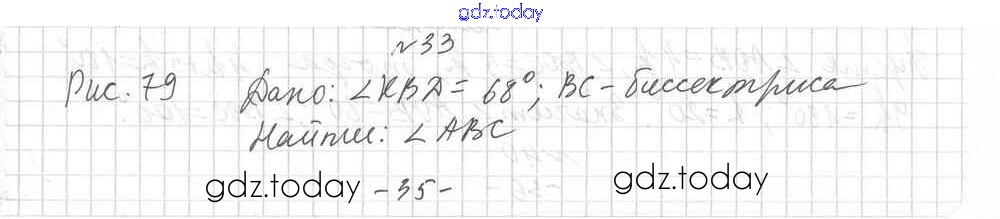 gdz.today
№33
Рис. 79 Дано: ∠KBD = 68°; BC - биссектриса
Найти: ∠ABC
gdz.today -35- gdz.today